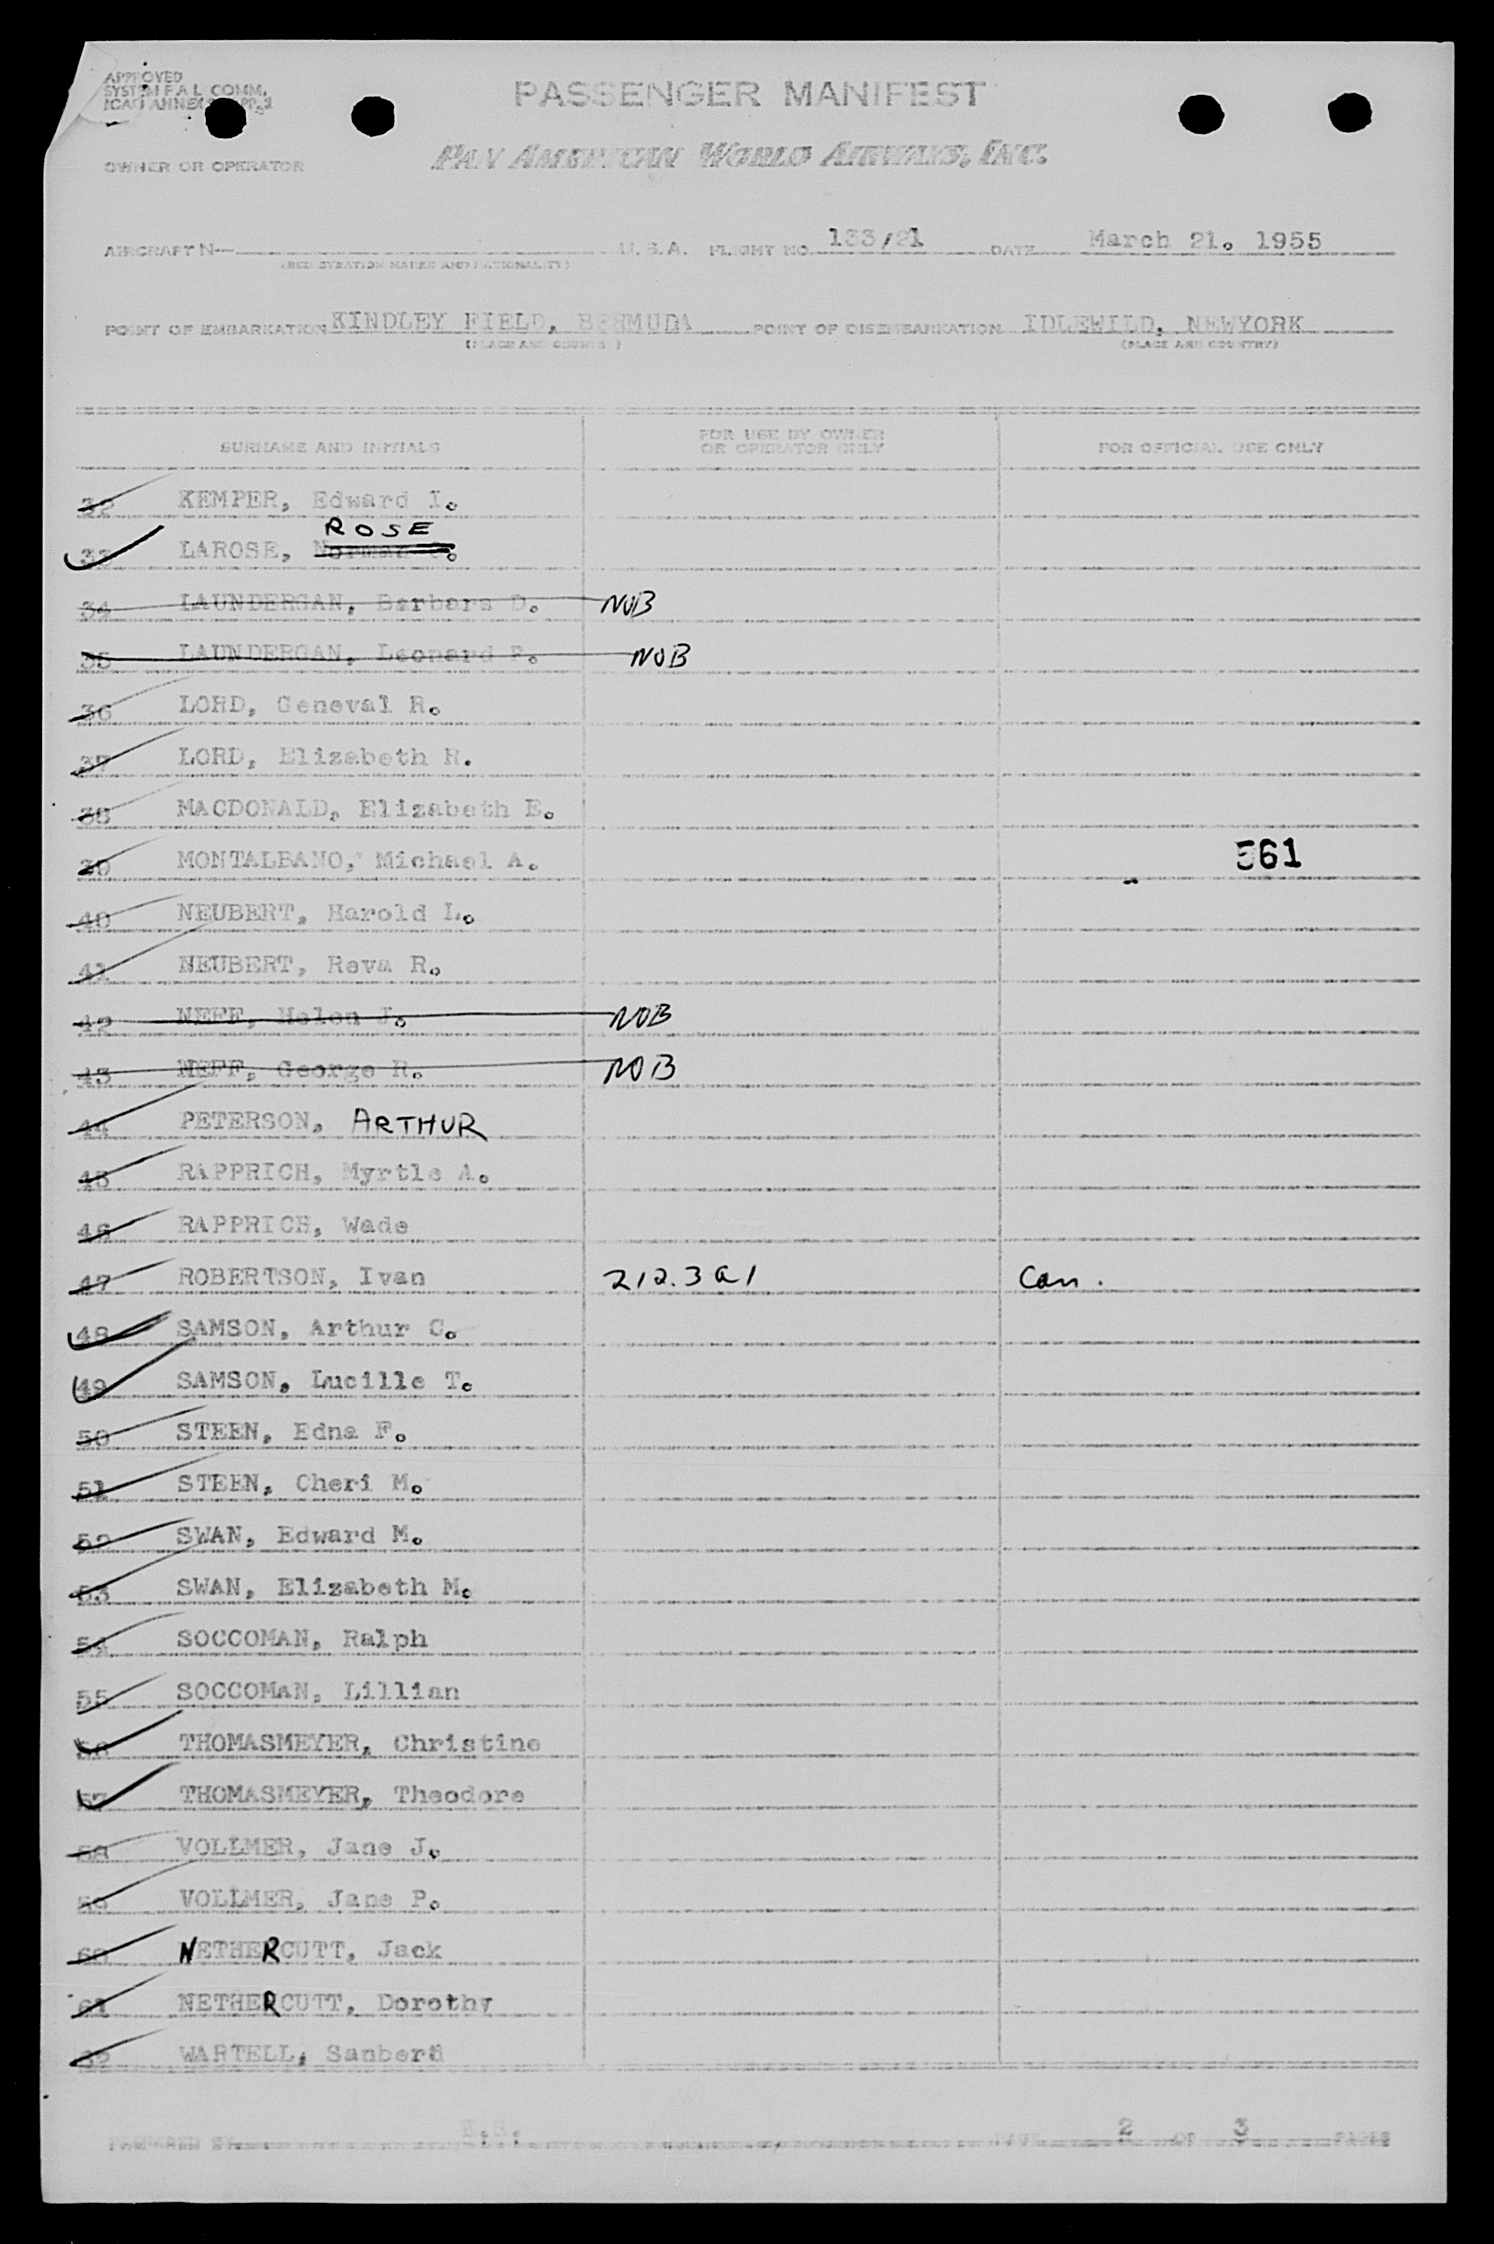 APPROVED
SYSTEM F A L COMM.
ICAO ANNEX 9 APP. 2
PASSENGER MANIFEST
OWNER OR OPERATOR PAN AMERICAN WORLD AIRWAYS, INC.
AIRCRAFT N— U. S. A. FLIGHT NO. 133/21 DATE March 21. 1955
(REGISTRATION MARKS AND NATIONALITY)
POINT OF EMBARKATION KINDLEY FIELD, BERMUDA POINT OF DISEMBARKATION IDLEWILD, NEWYORK
(PLACE AND COUNTRY) (PLACE AND COUNTRY)
SURNAME AND INITIALS FOR USE BY OWNER OR OPERATOR ONLY FOR OFFICIAL USE ONLY
32 KEMPER, Edward I.
ROSE
33 LAROSE, Norman
34 LAUNDERGAN, Barbara D. NOB
35 LAUNDERGAN, Leonard F. NOB
36 LORD, Geneval R.
37 LORD, Elizabeth H.
38 MACDONALD, Elizabeth E.
39 MONTALBANO, Michael A. 561
40 NEUBERT, Harold L.
41 NEUBERT, Reva R.
42 NEFF, Helen J. NOB
43 NEFF, George R. NOB
44 PETERSON, ARTHUR
45 RAPPRICH, Myrtle A.
46 RAPPRICH, Wade
47 ROBERTSON, Ivan 212.3 a 1 Can.
48 SAMSON, Arthur C.
49 SAMSON, Lucille T.
50 STEEN, Edna F.
51 STEEN, Cheri M.
52 SWAN, Edward M.
53 SWAN, Elizabeth M.
54 SOCCOMAN, Ralph
55 SOCCOMAN, Lillian
56 THOMASMEYER, Christine
57 THOMASMEYER, Theodore
58 VOLLMER, Jane J.
59 VOLLMER, Jane P.
60 NETHERCUTT, Jack
61 NETHERCUTT, Dorothy
62 WARTELL, Sanberd
PREPARED BY PAGE 2 OF 3 PAGES